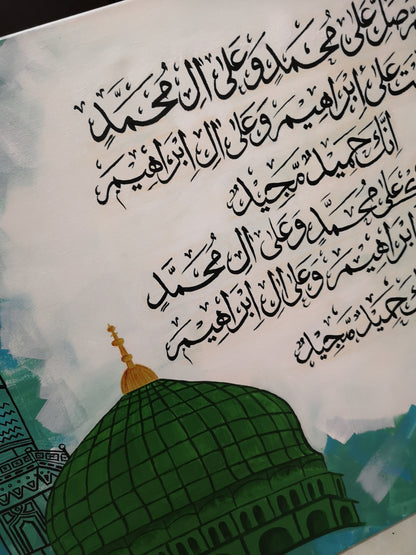 صَلِّ عَلٰى مُحَمَّدٍ وَعَلٰى اٰلِ مُحَمَّدٍ
عَلٰى اِبْرَاهِيمَ وَعَلٰى اٰلِ اِبْرَاهِيمَ
اِنَّكَ حَمِيدٌ مَّجِيدٌ
عَلٰى مُحَمَّدٍ وَعَلٰى اٰلِ مُحَمَّدٍ
اِبْرَاهِيمَ وَعَلٰى اٰلِ اِبْرَاهِيمَ
حَمِيدٌ مَّجِيدٌ